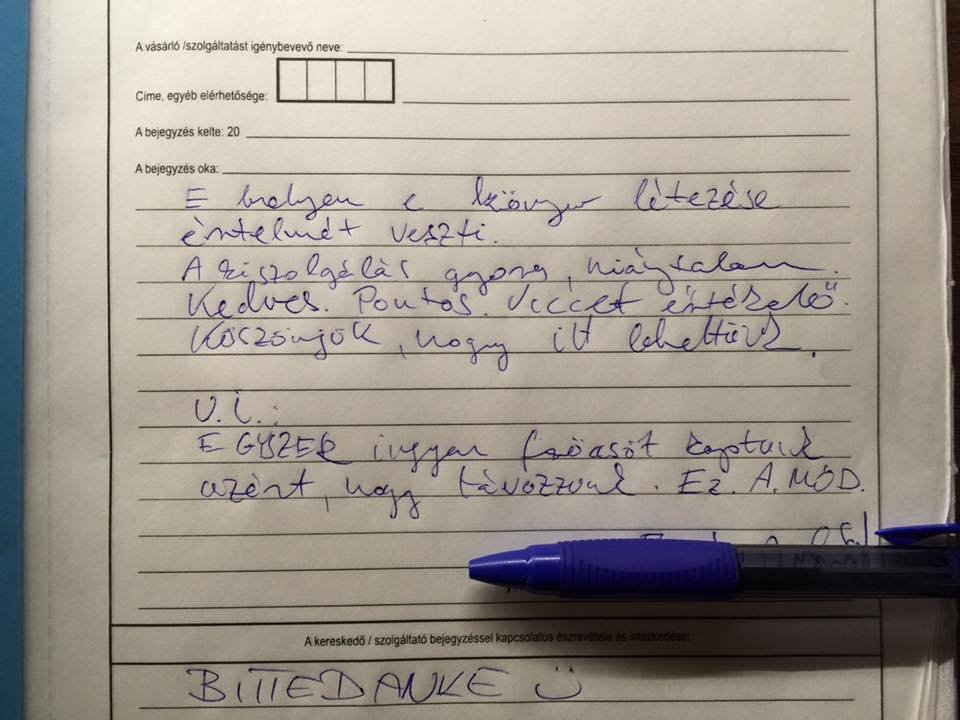 A vásárló /szolgáltatást igénybevevő neve:
Címe, egyéb elérhetősége:
A bejegyzés kelte: 20
A bejegyzés oka:
E helyen e könyv létezése
értelmét veszti.
A kiszolgálás gyors, hiánytalan.
Kedves. Pontos. Viccet értékelő.
Köszönjük, hogy itt lehettünk.
U.i.:
EGYSZER ingyen kaptunk
azért, hogy távozzunk. Ez. A. MÓD.
A kereskedő / szolgáltató bejegyzéssel kapcsolatos észrevétele és intézkedése:
BITTEDANKE